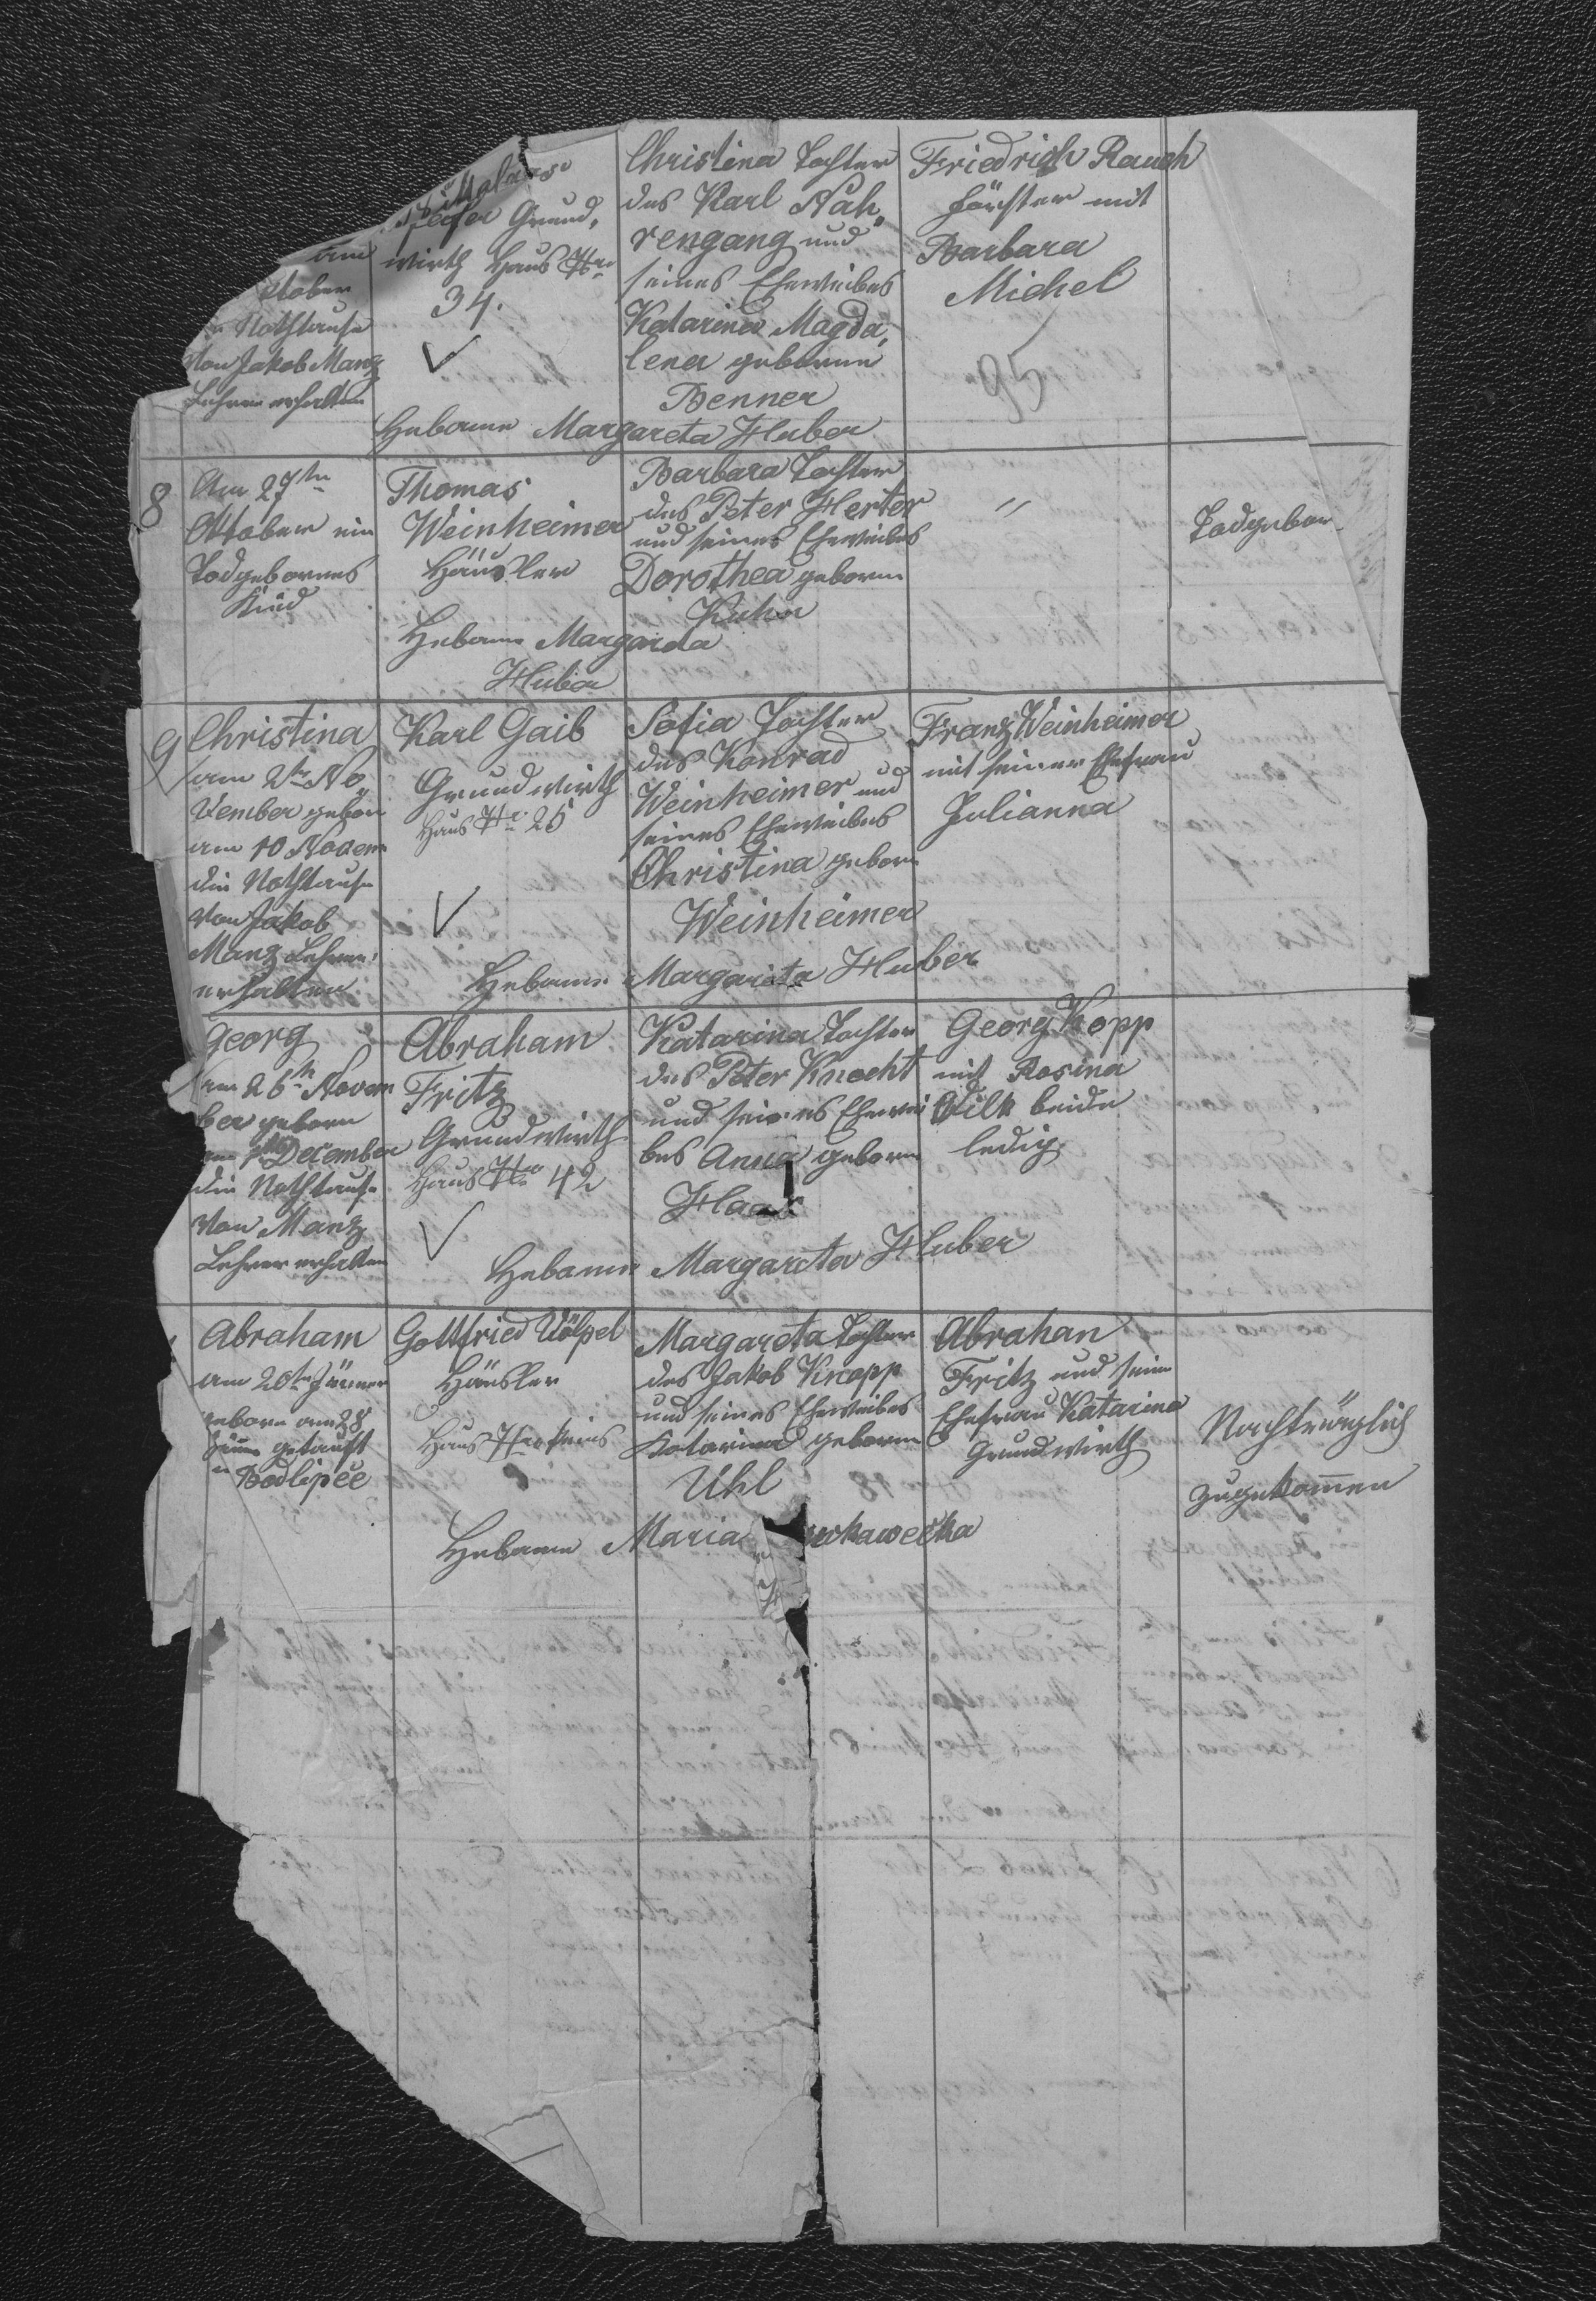 am
ktober
Nothtaufe
von Jakob Manz
Lehrer erhalten
Grund,
wirth Haus Nro
34.
Christina Tochter
des Karl Nah,,
rengang und
seines Eheweibes
Katarina Magda,
lena geborene
Benner
Friedrich Rauch
Förster mit
Barbara
Michel
95
Hebame Margareta Huber
8
Am 27ten
Oktober ein
Todgebornes
Kind
Thomas
Weinheimer
Häusler
Barbara Tochter
des Peter Herter
und seines Eheweibes
Dorothea geborne
Kuhn
"
Todgebor
Hebame Margareta
Huber
9
Christina
am 2ten No,,
vember gebor
am 10 Novem
die Nothtaufe
von Jakob
Manz Lehrer
erhalten
Karl Gaib
Grundwirth
Haus Nro 25
Sofia Tochter
des Konrad
Weinheimer und
seines Eheweibes
Christina geborn
Weinheimer
Franz Weinheimer
mit seiner Ehefrau
Julianna
Hebame Margareta Huber
Georg
am 26ten Novem
ber geborn
am December
die Nothtaufe
von Manz
Lehrer erhalten
Abraham
Fritz
Grundwirth
Haus Nro 42
Katarina Tochter
des Peter Knecht
und seines Ehewei
bes Anna geborn
Haas
Georg Kopp
mit Rosina
Filk beide
ledig
Hebame Margareta Huber
Abraham
am 20ten Jänner
geborn am 28
Jänner getauft
in Podlipče
Gottfried Völpel
Häusler
Haus Nro keins
Margareta Tochter
des Jakob Knopp
und seines Eheweibes
Katarina geborne
Uhl
Abrahan
Fritz und seine
Ehefrau Katarina
Grundwirth
Nachträglich
zugekommen
Hebame Maria